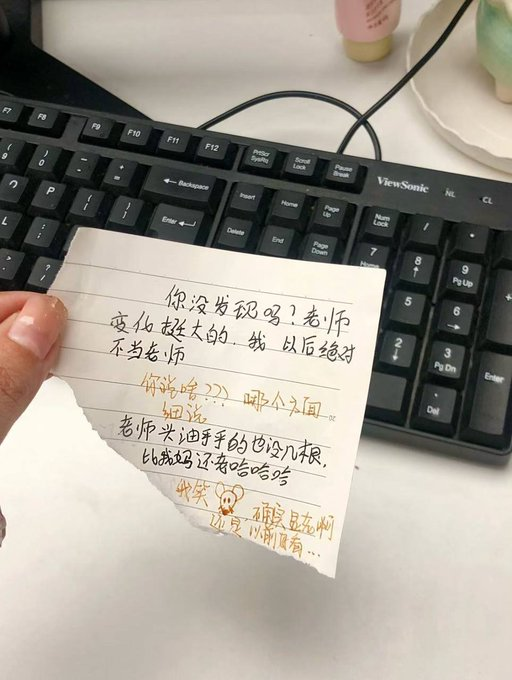 F7
F8
F9
F10
F11
F12
PrtScr
SysRq
Scroll
Lock
Pause
Break
ViewSonic
NL
CL
Backspace
Insert
Home
Page
Up
Num
Lock
/
*
-
P
Enter
Delete
End
Page
Down
7
Home
8
9
Pg Up
5
6
2
3
Pg Dn
Enter
Del
你没发现吗?老师
变化挺大的,我以后绝对
不当老师
你说啥??? 哪个方面
细说
老师头油乎乎的也没几根,
比我妈还老哈哈哈
我笑
确实显老啊
以前没有...